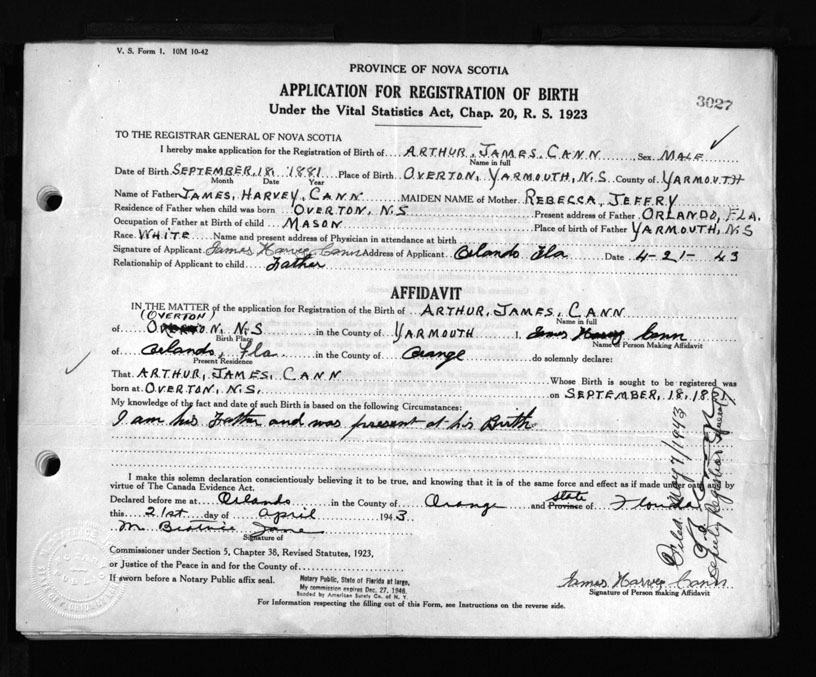 V. S. Form 1. 10M 10-42
PROVINCE OF NOVA SCOTIA
APPLICATION FOR REGISTRATION OF BIRTH
3027
Under the Vital Statistics Act, Chap. 20, R. S. 1923
TO THE REGISTRAR GENERAL OF NOVA SCOTIA
I hereby make application for the Registration of Birth of ARTHUR JAMES CANN Sex MALE
Name in full
Date of Birth SEPTEMBER 18 1881 Place of Birth OVERTON, YARMOUTH, N.S County of YARMOUTH
Month Date Year
Name of Father JAMES HARVEY CANN MAIDEN NAME of Mother REBECCA JEFFRY
Residence of Father when child was born OVERTON, N.S Present address of Father ORLANDO, FLA.
Occupation of Father at Birth of child MASON Place of birth of Father YARMOUTH, N.S
Race WHITE Name and present address of Physician in attendance at birth
Signature of Applicant James Harvey Cann Address of Applicant Orlando Fla Date 4-21-43
Relationship of Applicant to child Father
AFFIDAVIT
IN THE MATTER of the application for Registration of the Birth of ARTHUR JAMES CANN
Name in full
(OVERTON)
of N.S in the County of YARMOUTH I, James Harvey Cann
Birth Place Name of Person Making Affidavit
of Orlando, Fla. in the County of Orange do solemnly declare:
Present Residence
That ARTHUR JAMES CANN Whose Birth is sought to be registered was
born at OVERTON, N.S. on SEPTEMBER, 18, 1881
My knowledge of the fact and date of such Birth is based on the following Circumstances:
I am his Father and was present at his Birth
I make this solemn declaration conscientiously believing it to be true, and knowing that it is of the same force and effect as if made under oath and by
virtue of The Canada Evidence Act.
Declared before me at Orlando in the County of Orange and state Province of Florida
this 21st day of April 1943
M Beatrice
Signature of
Commissioner under Section 5, Chapter 38, Revised Statutes, 1923,
or Justice of the Peace in and for the County of
If sworn before a Notary Public affix seal.
Notary Public, State of Florida at large,
My commission expires Dec. 27, 1946.
Bonded by American Surety Co. of N. Y.
James Harvey Cann
Signature of Person making Affidavit
For Information respecting the filling out of this Form, see Instructions on the reverse side.
Filed May 7/1943
Deputy Registrar General